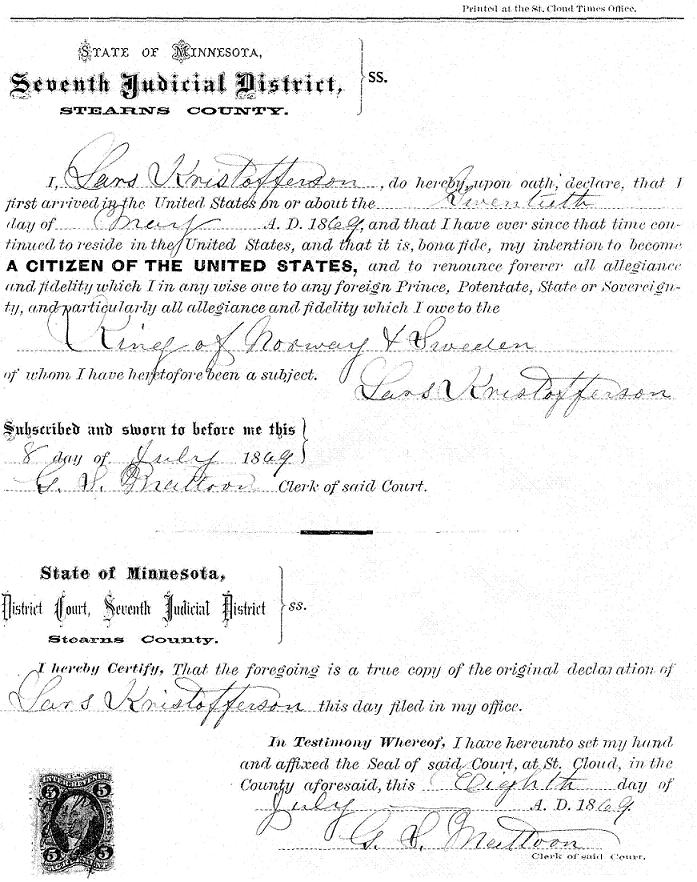 Printed at the St. Cloud Times Office.
STATE OF MINNESOTA,
Seventh Judicial District,
STEARNS COUNTY.
SS.
I, Lars Kristofferson, do hereby, upon oath, declare, that I
first arrived in the United States on or about the Twentieth
day of May A. D. 1869, and that I have ever since that time con-
tinued to reside in the United States, and that it is, bona fide, my intention to become
A CITIZEN OF THE UNITED STATES, and to renounce forever all allegiance
and fidelity which I in any wise owe to any foreign Prince, Potentate, State or Sovereign-
ty, and particularly all allegiance and fidelity which I owe to the
King of Norway & Sweden
of whom I have heretofore been a subject.
Lars Kristofferson
Subscribed and sworn to before me this
8 day of July 1869
G. S. Mattoon Clerk of said Court.
State of Minnesota,
District Court, Seventh Judicial District
Stearns County.
ss.
I hereby Certify, That the foregoing is a true copy of the original declaration of
Lars Kristofferson this day filed in my office.
In Testimony Whereof, I have hereunto set my hand
and affixed the Seal of said Court, at St. Cloud, in the
County aforesaid, this Eighth day of
July A. D. 1869.
G. S. Mattoon
Clerk of said Court.
5 5
5 5